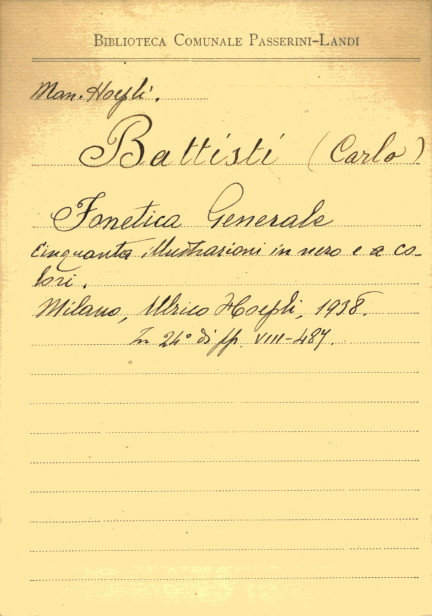 BIBLIOTECA COMUNALE PASSERINI-LANDI
Man. Hoepli.
Battisti (Carlo)
Fonetica Generale
Cinquanta illustrazioni in nero e a co-
lori.
Milano, Ulrico Hoepli, 1938.
In 24° di pp. VIII-487.